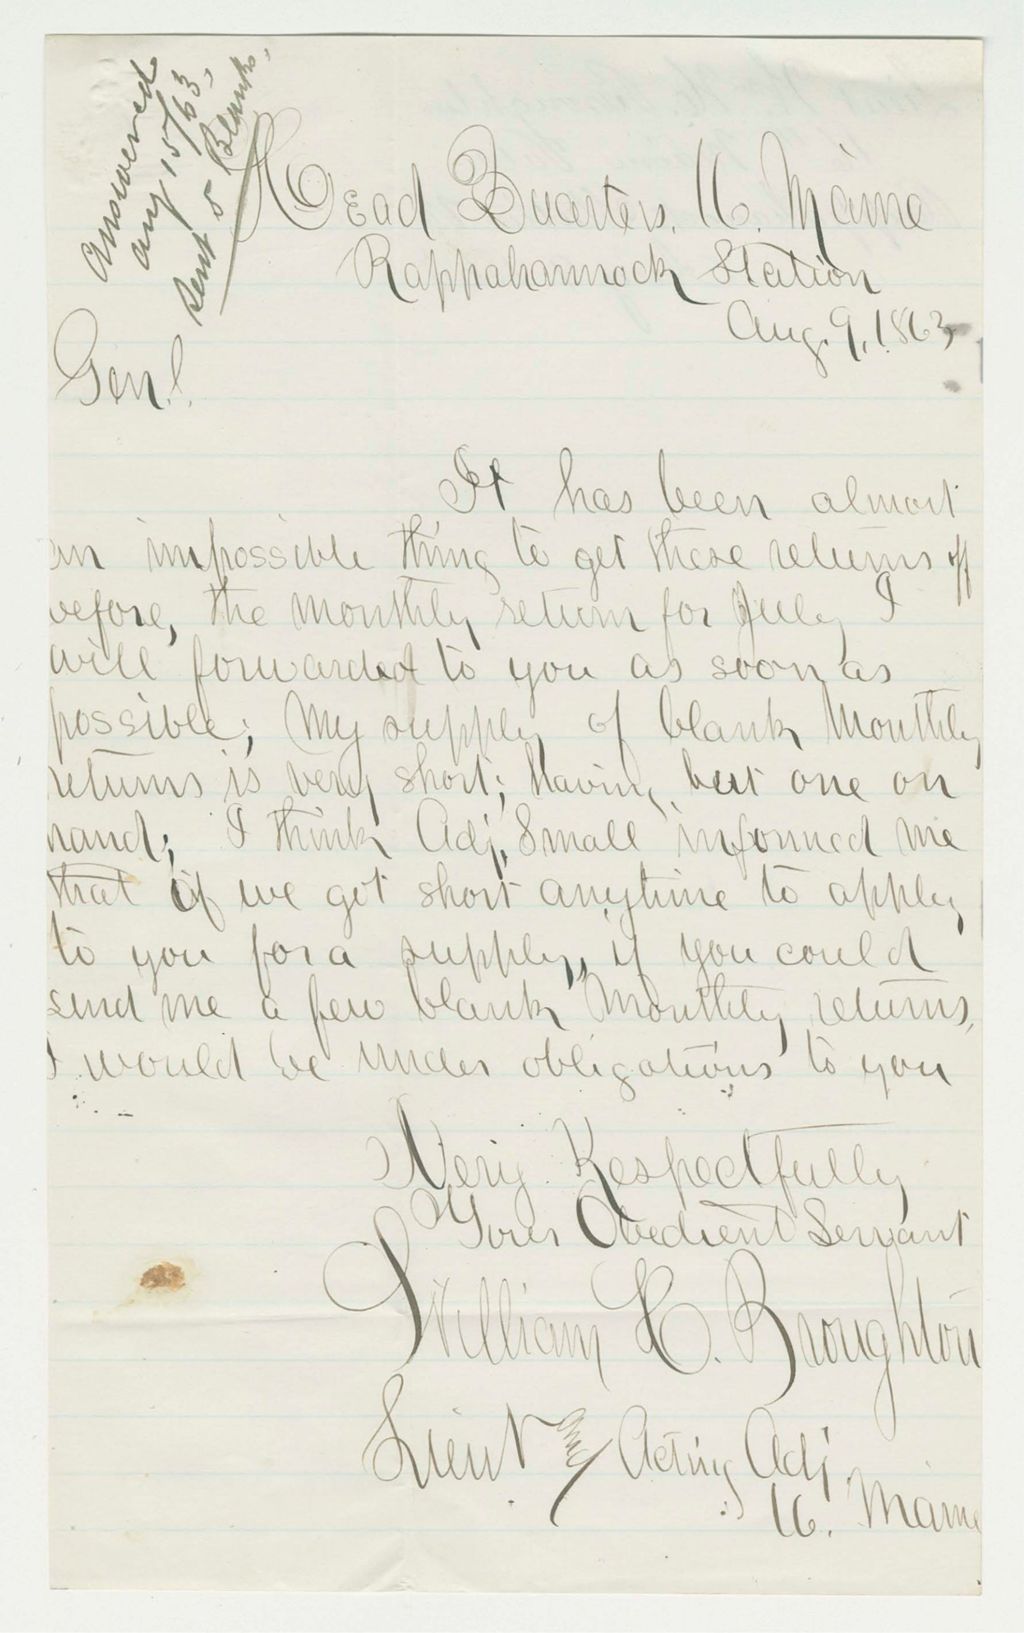 Answered
Aug 15/63,
Sent 5 Blanks,
Head Quarters, 16. Maine
Rappahannock Station
Aug. 9, 1863
Genl.
It has been almost
an impossible thing to get these returns off
before, the monthly return for July I
will forwarded to you as soon as
possible; My supply of blank Monthly
returns is very short; having but one on
hand; I think Adj. Small informed me
that if we got short anytime to apply
to you for a supply, if you could
send me a few blank Monthly returns,
I would be under obligations to you
Very Respectfully
Your Obedient Servant
William H. Broughton
Lieut and Acting Adj
16. Maine